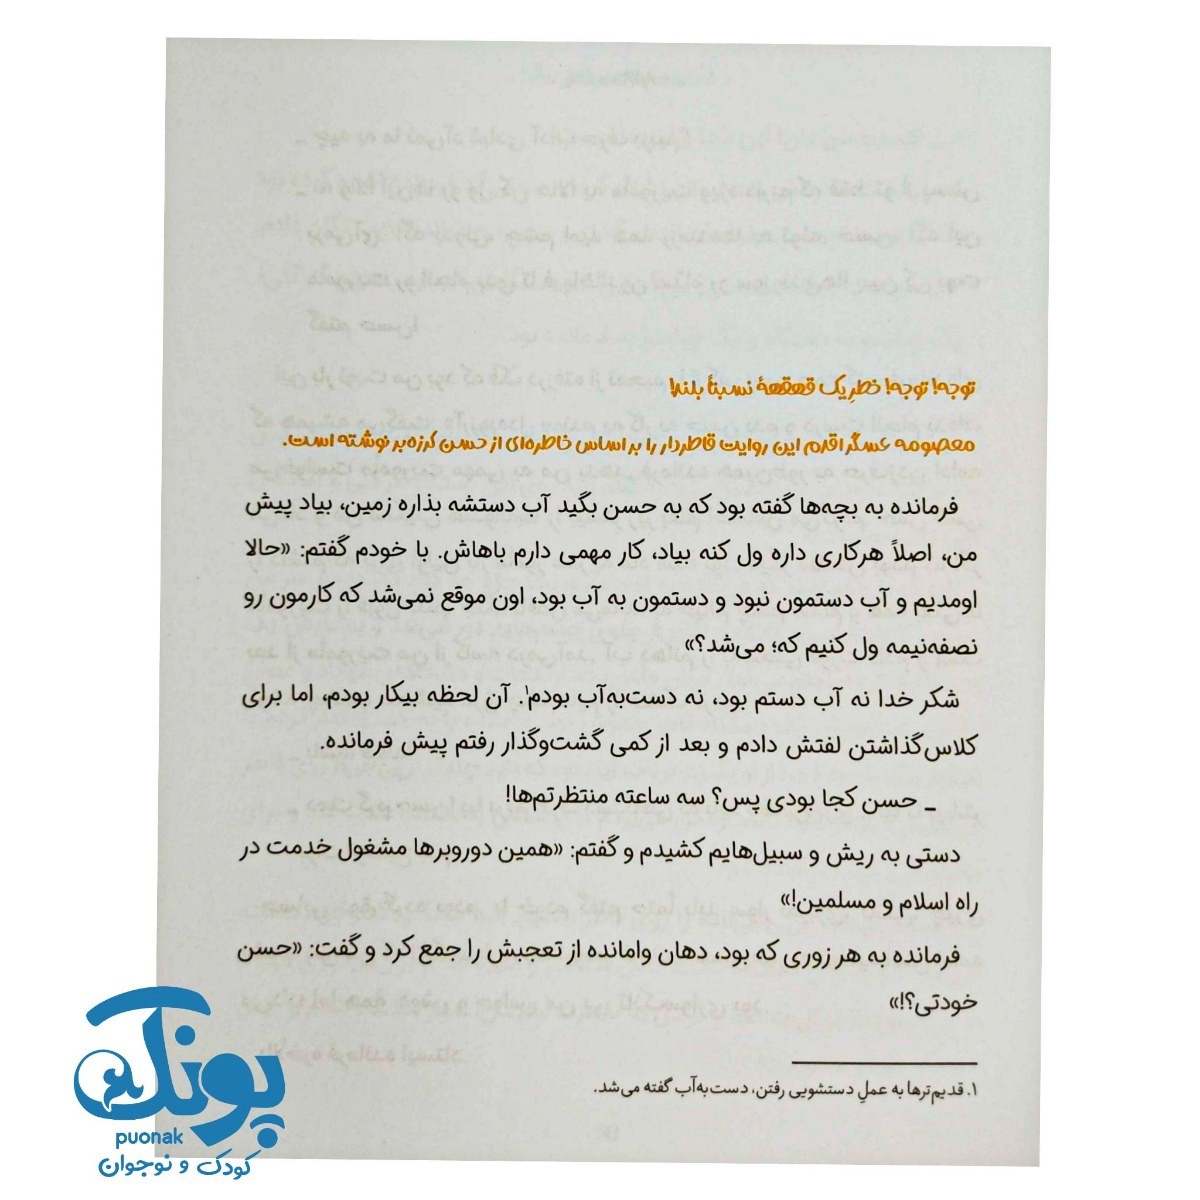 توجه! توجه! خطرِ یک قهقههٔ نسبتاً بلند!
معصومه عسگر اقدم این روایت قاطردار را بر اساس خاطره‌ای از حسن کرزه‌بر نوشته است.
فرمانده به بچه‌ها گفته بود که به حسن بگید آب دستشه بذاره زمین، بیاد پیش
من، اصلاً هرکاری داره ول کنه بیاد، کار مهمی دارم باهاش. با خودم گفتم: «حالا
اومدیم و آب دستمون نبود و دستمون به آب بود، اون موقع نمی‌شد که کارمون رو
نصفه‌نیمه ول کنیم که؛ می‌شد؟»
شکر خدا نه آب دستم بود، نه دست‌به‌آب بودم۱. آن لحظه بیکار بودم، اما برای
کلاس‌گذاشتن لفتش دادم و بعد از کمی گشت‌وگذار رفتم پیش فرمانده.
ـ حسن کجا بودی پس؟ سه ساعته منتظرتم‌ها!
دستی به ریش و سبیل‌هایم کشیدم و گفتم: «همین دوروبرها مشغول خدمت در
راه اسلام و مسلمین!»
فرمانده به هر زوری که بود، دهان وامانده از تعجبش را جمع کرد و گفت: «حسن
خودتی؟!»
۱. قدیم‌ترها به عملِ دستشویی رفتن، دست‌به‌آب گفته می‌شد.
پونک
puonak
کودک و نوجوان